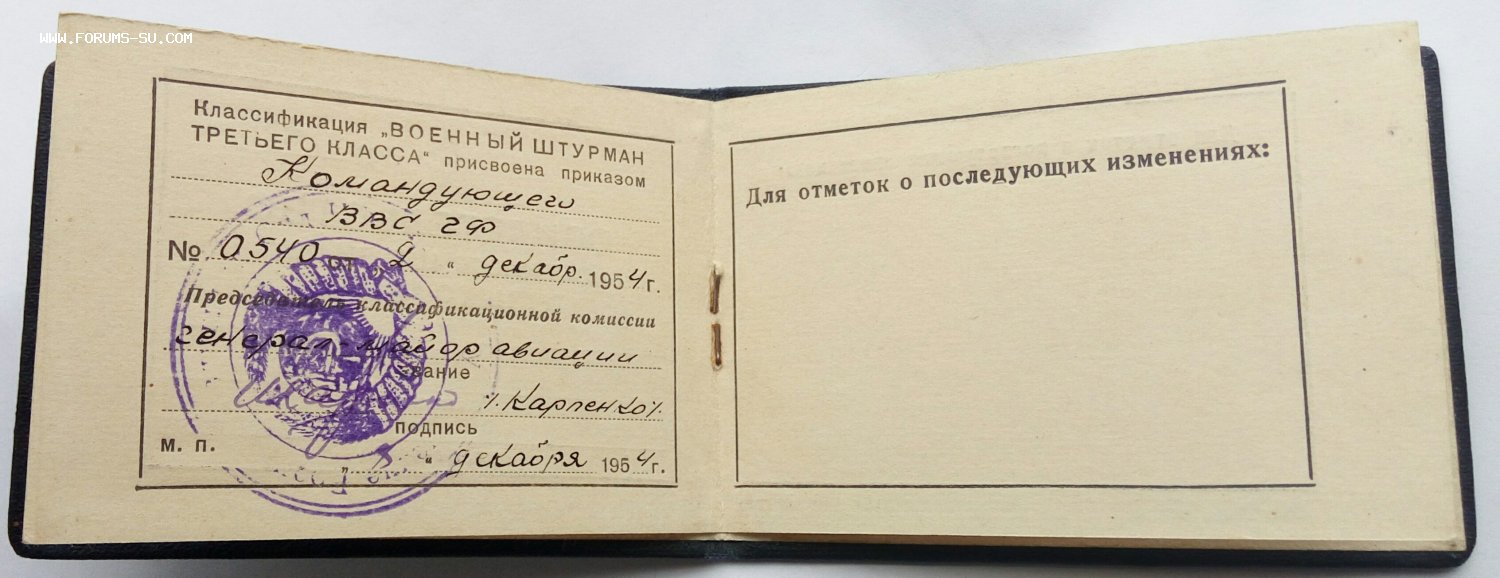 www.forums-su.com
Классификация „ВОЕННЫЙ ШТУРМАН
ТРЕТЬЕГО КЛАССА“ присвоена приказом
Командующего
ВВС ЧФ
№ 0540 от „2“ декабр. 1954 г.
Председатель классификационной комиссии
генерал-майор авиации
звание
/. Карпенко /.
подпись
М. П.
„ “ декабря 1954 г.
Для отметок о последующих изменениях: